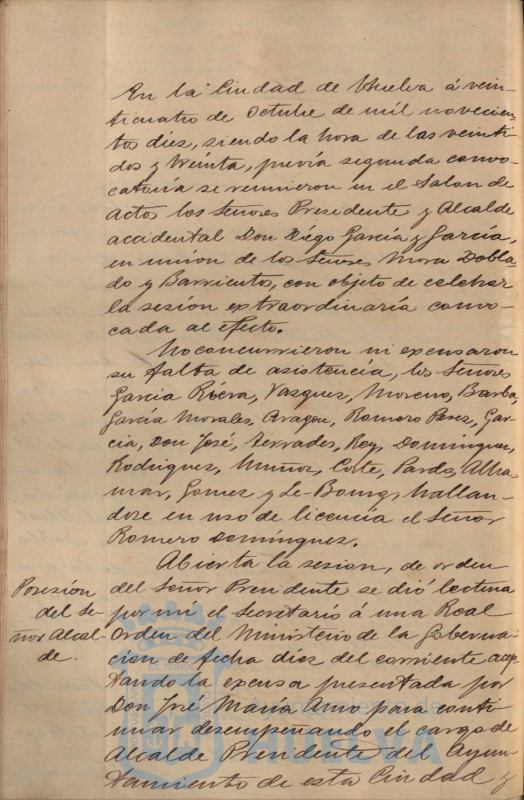 En la Ciudad de Huelva á vein-
ticuatro de Octubre de mil novecien-
tos diez, siendo la hora de las veinti-
dos y treinta, previa segunda convo-
catoria se reunieron en el Salon de
actos los Señores Presidente y Alcalde
accidental Don Diego García y García,
en union de los Señores Mora Dobla-
do y Barrientos, con objeto de celebrar
la sesión extraordinaria convo-
cada al efecto.
No concurrieron ni excusaron
su falta de asistencia, los Señores
Garcia Riera, Vazquez, Moreno, Barba,
García Morales, Aragon, Romero Perez, Gar-
cia, Don José, Terrades, Rey, Dominguez,
Rodriguez, Muñoz, Corte, Pardo, Alha-
mar, Gomez y Le-Bourg, hallan-
dose en uso de licencia el Señor
Romero Dominguez.
Posesión
del Se-
ñor Alcal-
de.
Abierta la sesion, de orden
del Señor Presidente se dió lectura
por mi el Secretario á una Real
orden del Ministerio de la Goberna-
cion de fecha diez del corriente acep-
tando la excusa presentada por
Don José María Amo para conti-
nuar desempeñando el cargo de
Alcalde Presidente del Ayun-
tamiento de esta Ciudad y